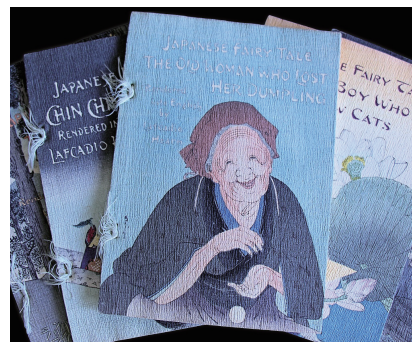 JAPANESE
CHIN CHI
RENDERED IN
LAFCADIO
JAPANESE FAIRY TALE
THE OLD WOMAN WHO LOST
HER DUMPLING
E FAIRY TA
BOY WHO
CATS